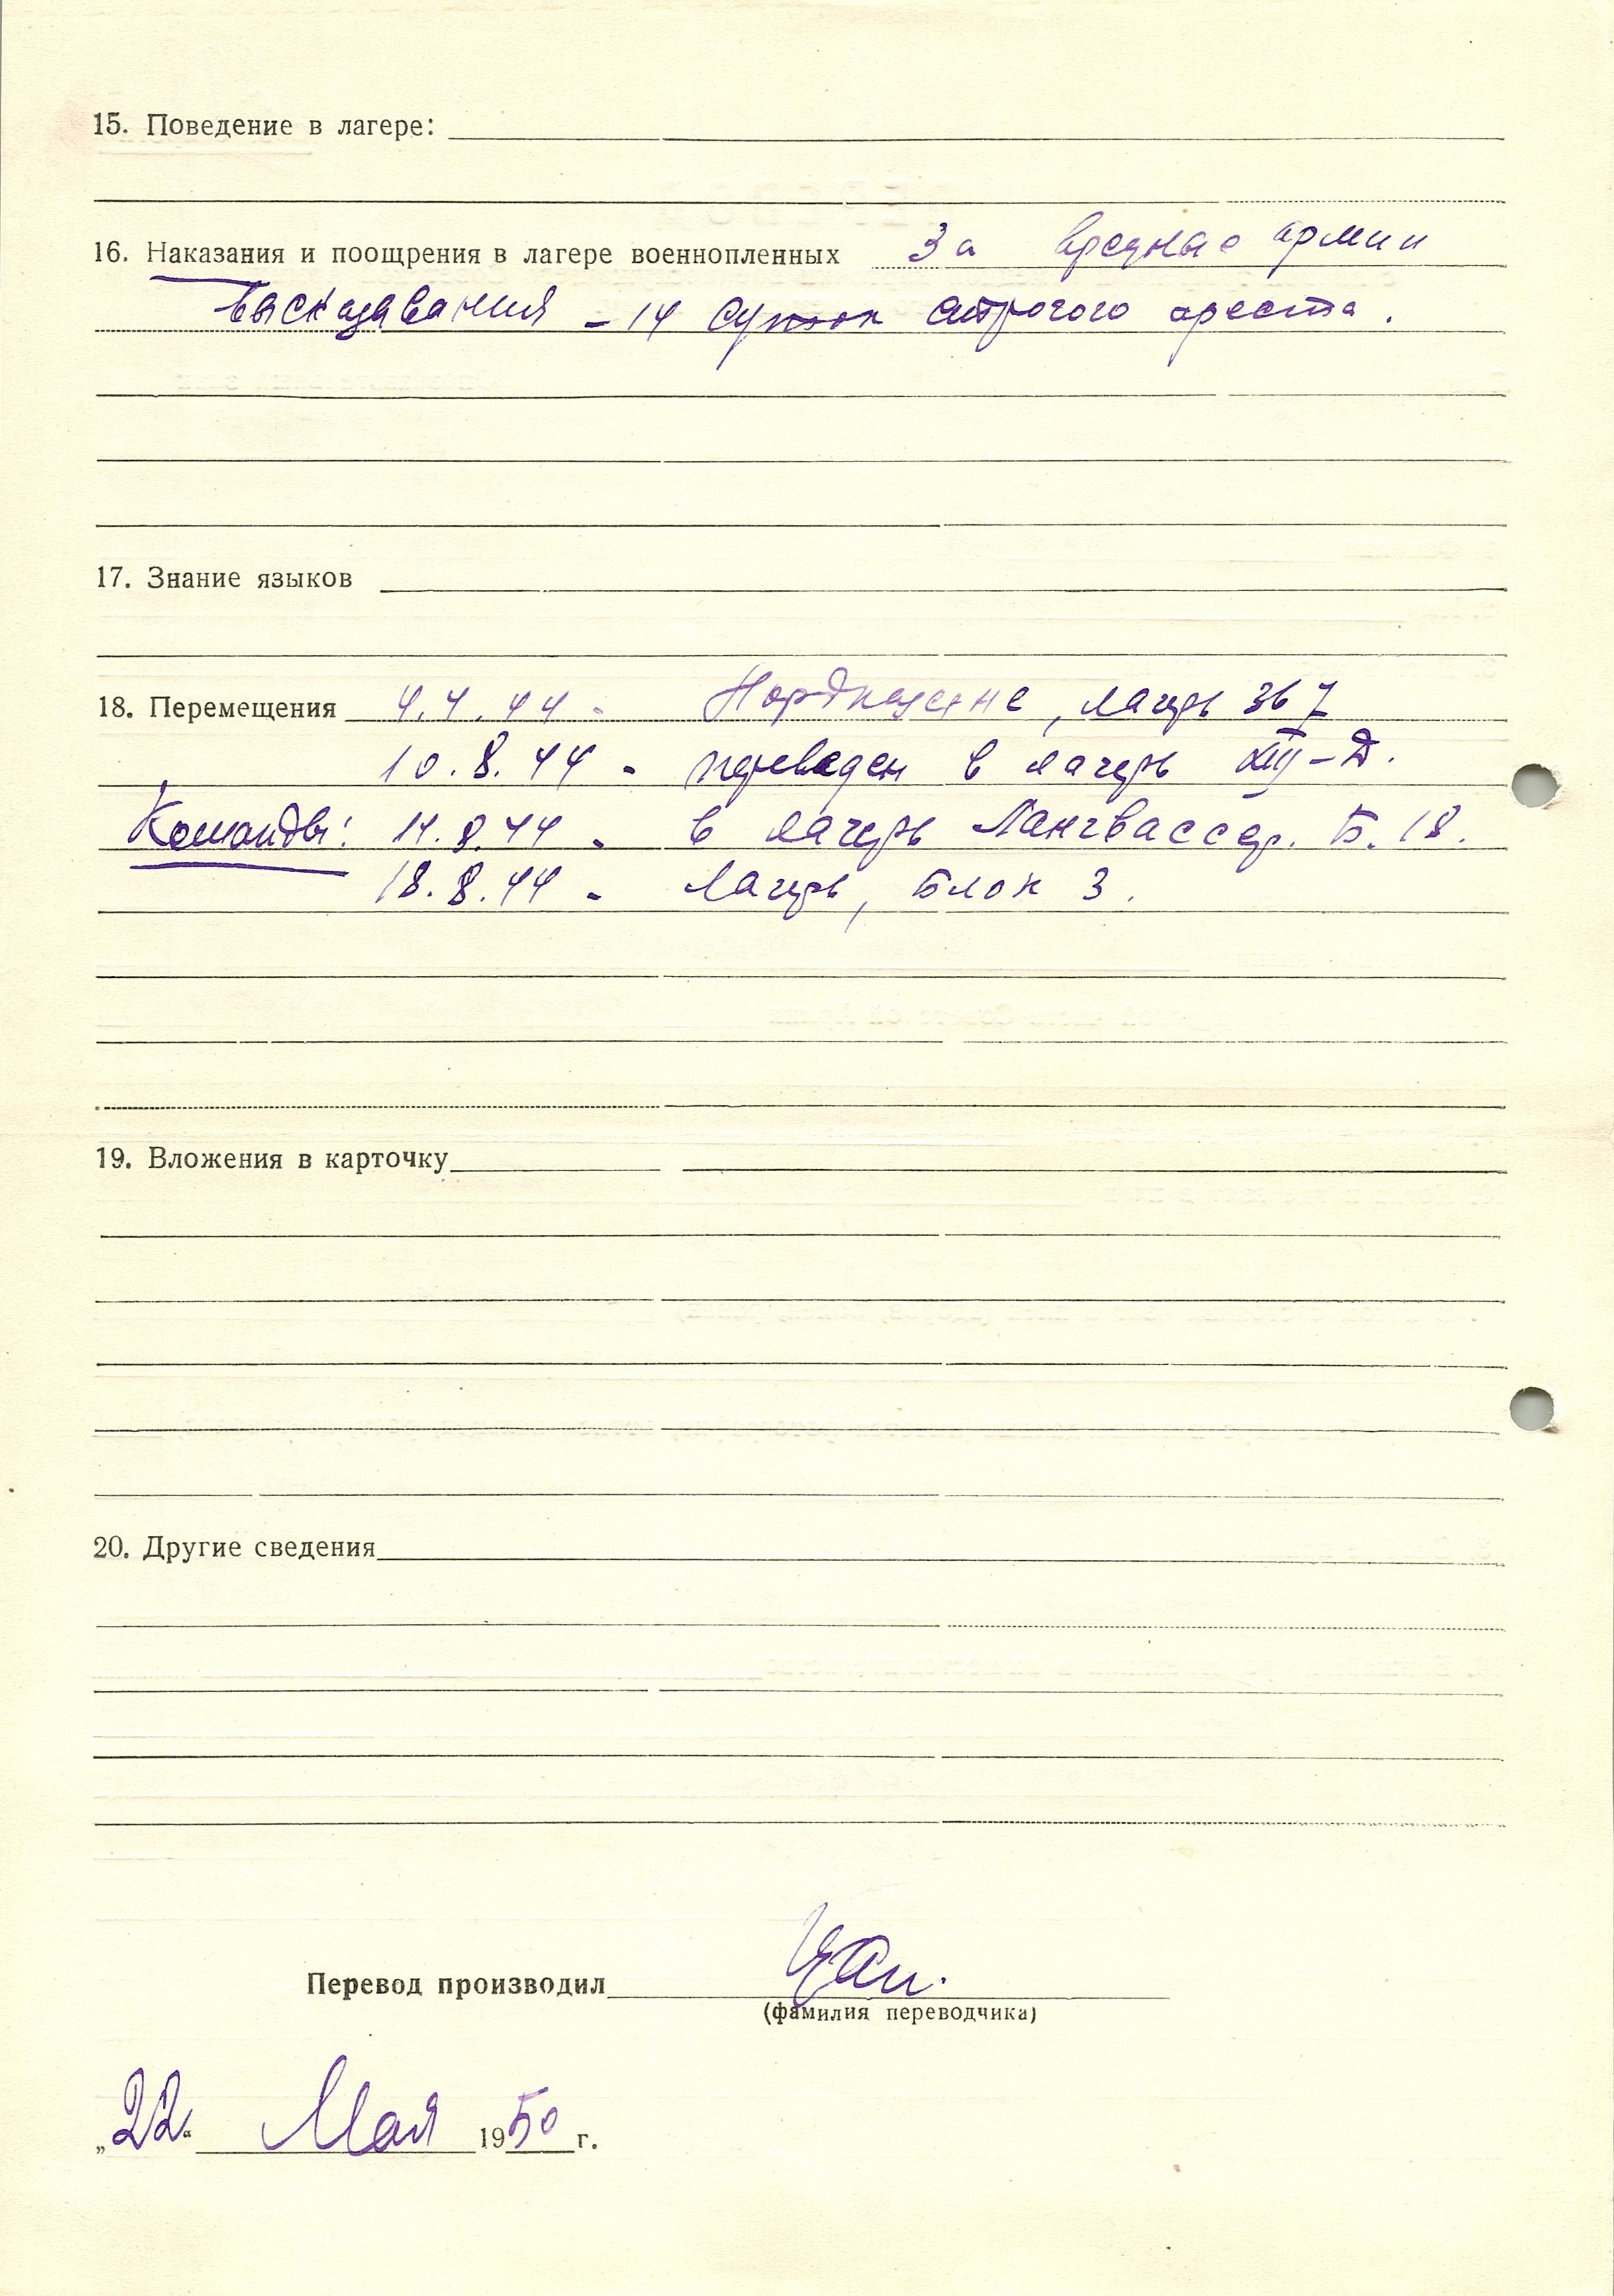 15. Поведение в лагере:
16. Наказания и поощрения в лагере военнопленных За вредные армии
высказывания – 14 суток строгого ареста.
17. Знание языков
18. Перемещения 4.4.44 - лагерь 367
10.8.44 - переведен в лагерь XIII-Д.
Команды: 11.8.44 - в лагерь Лангвассер. Б. 18.
18.8.44 - Лагерь, Блок 3.
19. Вложения в карточку
20. Другие сведения
Перевод производил
(фамилия переводчика)
„22“ Мая 1950 г.